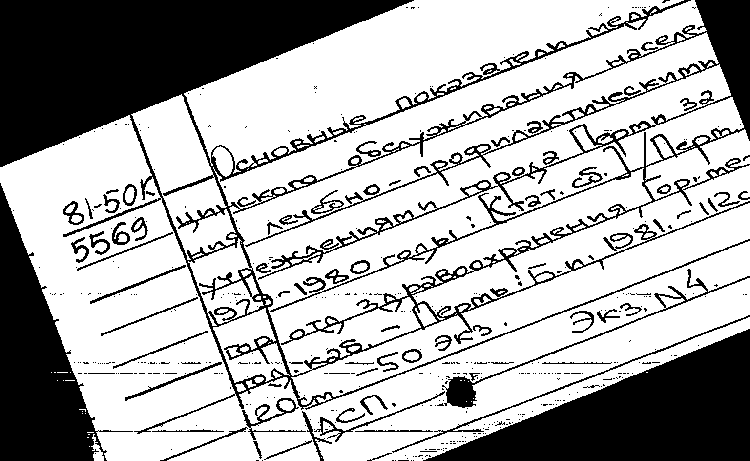 81-50К
5569
Основные показатели меди-
цинского обслуживания населе-
ния лечебно-профилактическими
учреждениями города Перми за
1979-1980 годы: [Стат. сб.] / Перм.
гор. отд здравоохранения, Гор. ме-
тод. каб. - Пермь: Б.и., 1981. - 112 с
20см. - 50 экз. Экз. N4.
ДСП.